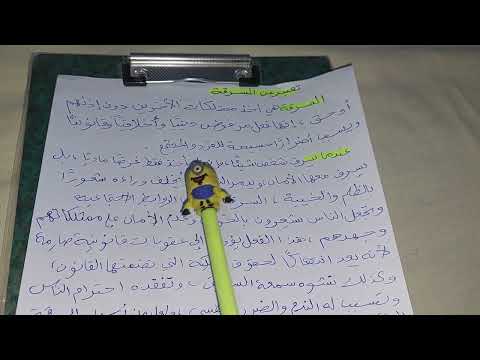 تعبير عن السرقة
السرقة هي أخذ ممتلكات الآخرين دون إذنهم
أو حق، إنها فعل مرفوض دينيا وأخلاقيا وقانونيا
ويسبب أضرارا جسيمة للفرد والمجتمع
عندما يسرق شخص شيئا، فقط غرضا ماديا، بل
يسرق معها الأمان، يخلف وراءه شعورا
بالظلم والخيبة، الروابط الاجتماعية
وتجعل الناس يشعرون وعدم الأمان على ممتلكاتهم
وجهدهم، هذا الفعل إلى عقوبات قانونية صارمة
لأنه يعد انتهاكا لحقوق الملكية التي يضمنها القانون
وكذلك تشوه سمعة وتفقده احترام الناس
وتسبب له الندم والضرر